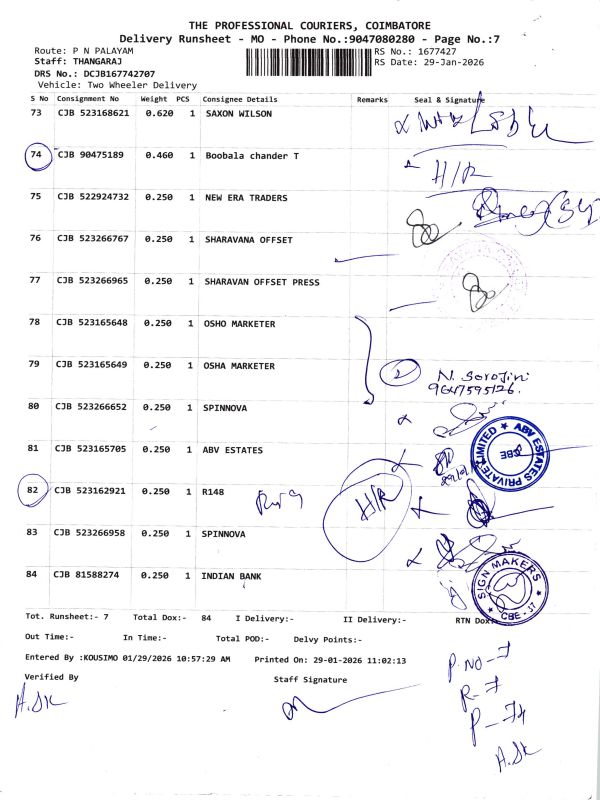 THE PROFESSIONAL COURIERS, COIMBATORE
Delivery Runsheet - MO - Phone No.:9047080280 - Page No.:7
Route: P N PALAYAM RS No.: 1677427
Staff: THANGARAJ RS Date: 29-Jan-2026
DRS No.: DCJB167742707
Vehicle: Two Wheeler Delivery
S No Consignment No Weight PCS Consignee Details Remarks Seal & Signature
73 CJB 523168621 0.620 1 SAXON WILSON
74 CJB 90475189 0.460 1 Boobala chander T H/R
75 CJB 522924732 0.250 1 NEW ERA TRADERS
76 CJB 523266767 0.250 1 SHARAVANA OFFSET
77 CJB 523266965 0.250 1 SHARAVAN OFFSET PRESS
78 CJB 523165648 0.250 1 OSHO MARKETER
79 CJB 523165649 0.250 1 OSHA MARKETER 2 N. Sorojini
9647595126.
80 CJB 523266652 0.250 1 SPINNOVA
81 CJB 523165705 0.250 1 ABV ESTATES
ABV ESTATES PRIVATE LIMITED
CBE
82 CJB 523162921 0.250 1 R148 H/R
83 CJB 523266958 0.250 1 SPINNOVA
84 CJB 81588274 0.250 1 INDIAN BANK
SIGN MAKERS
CBE - 37
Tot. Runsheet:- 7 Total Dox:- 84 I Delivery:- II Delivery:- RTN Dox:
Out Time:- In Time:- Total POD:- Delvy Points:-
Entered By :KOUSIMO 01/29/2026 10:57:29 AM Printed On: 29-01-2026 11:02:13
Verified By Staff Signature
P. NO - 7
R - 7
P - 74
A. SK
A. SK